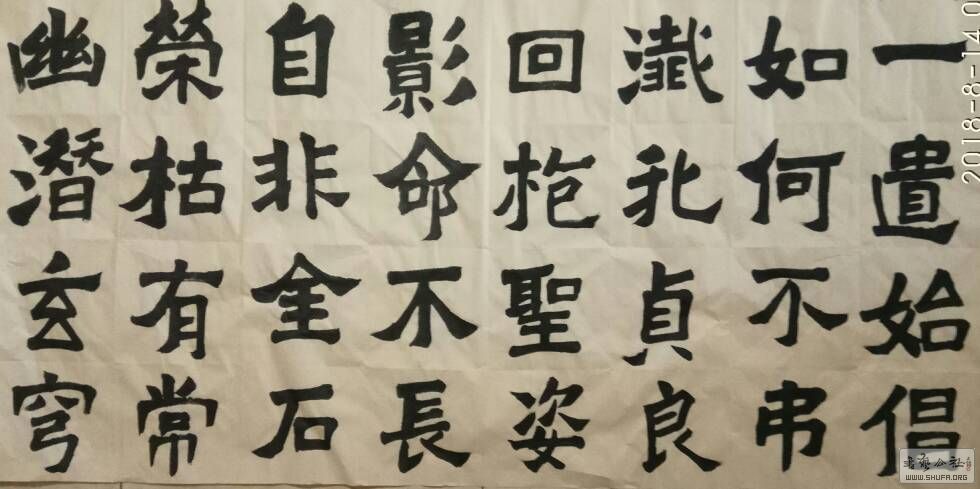 一遣始倡
如何不弔
瀸我貞良
回枹聖姿
影命不長
自非金石
榮枯有常
幽潛玄穹
2018-8-14 0
书法公社
WWW.SHUFA.ORG